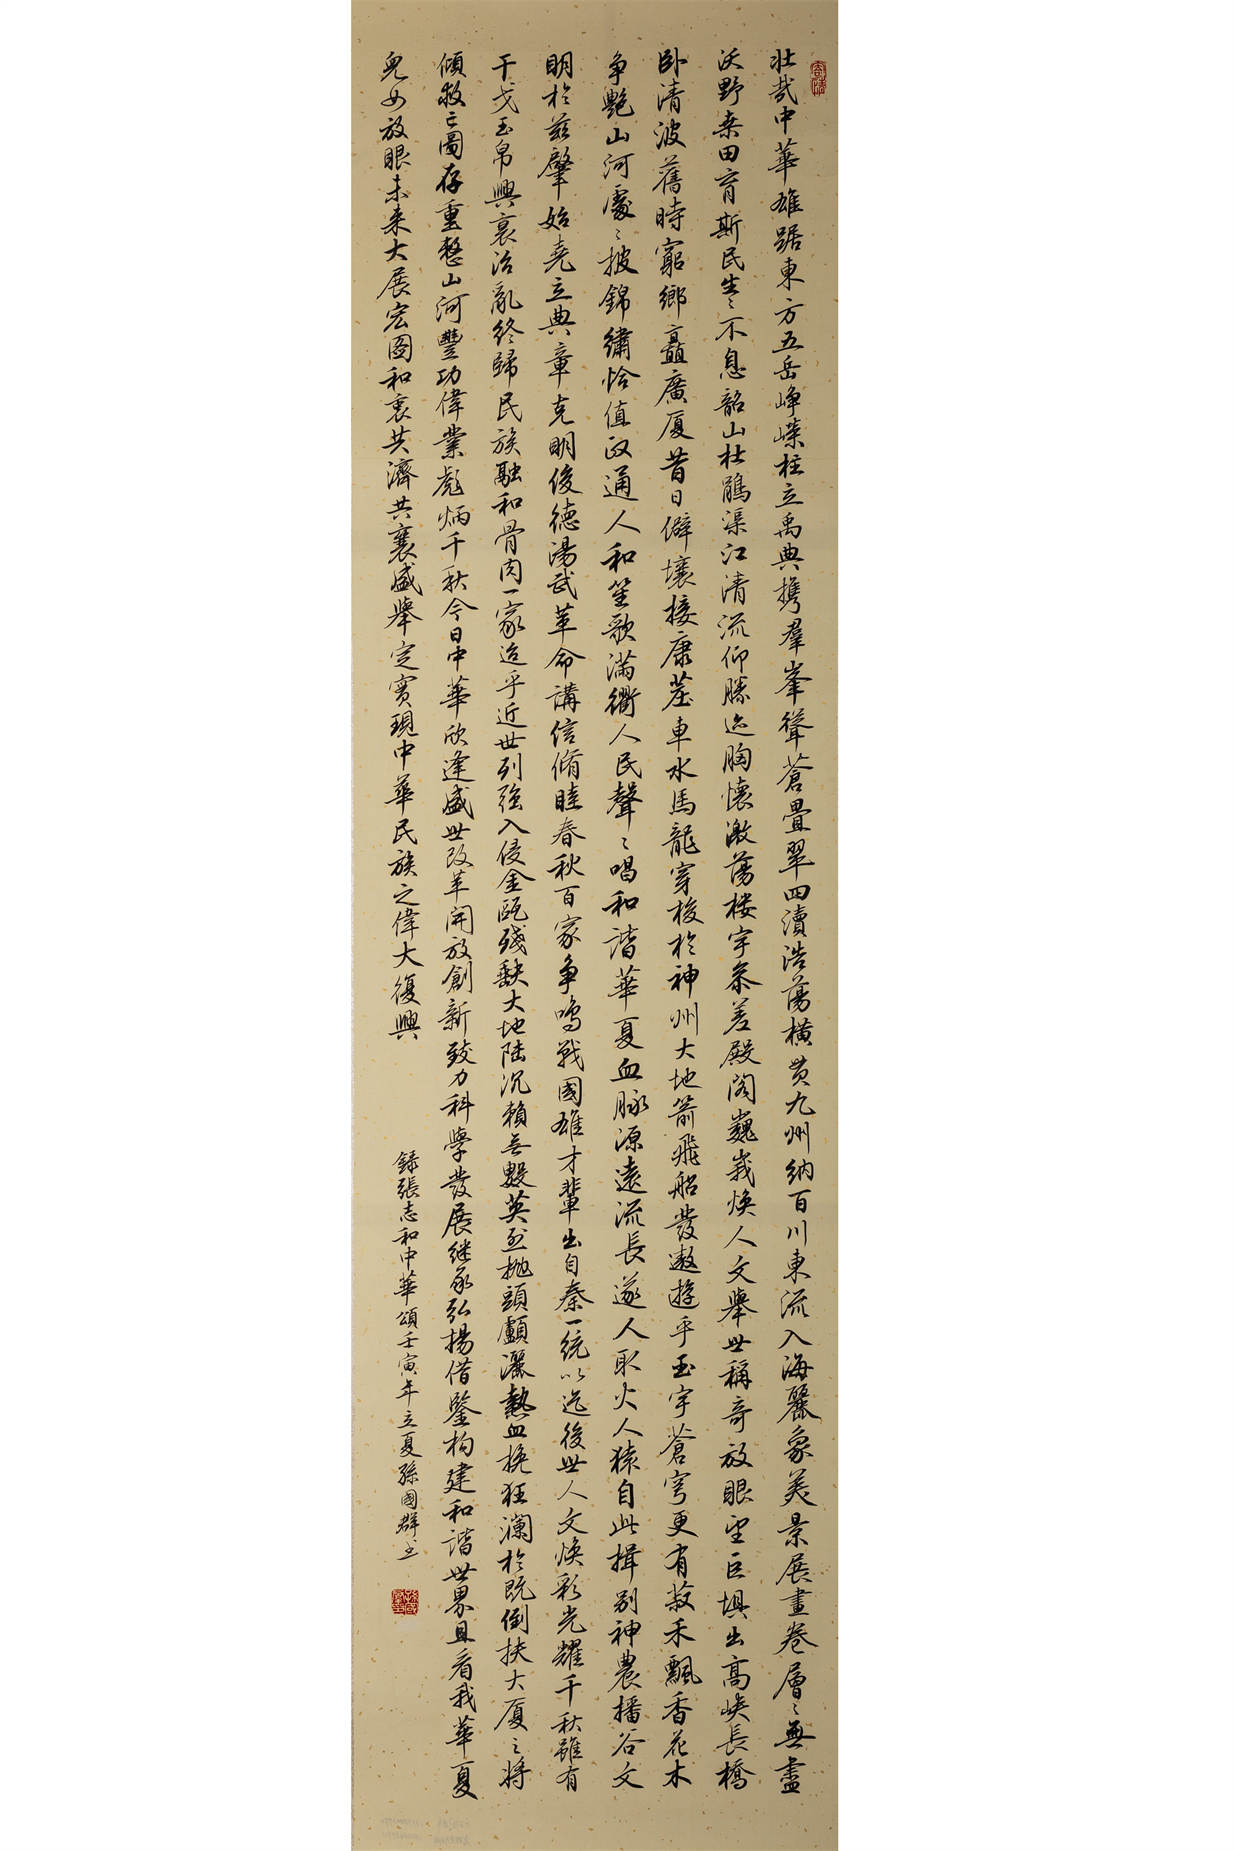 壯哉中華雄踞東方五岳崢嶸柱立禹典攜羣峯聳蒼疊翠四瀆浩蕩橫貫九州納百川東流入海麗象美景展畫卷層〻無盡
沃野桑田育斯民生〻不息韶山杜鵑渠江清流仰勝迹胸懷激蕩樓宇參差殿閣巍峩煥人文舉世稱奇放眼望巨埧出高峽長橋
卧清波舊時窮鄉矗廣厦昔日僻壤接康莊車水馬龍穿梭於神州大地箭飛船發遨遊乎玉宇蒼穹更有菽禾飄香花木
争艷山河處〻披錦繡恰值政通人和笙歌滿衢人民聲〻唱和諧華夏血脉源遠流長遂人取火人猿自此揖别神農播谷文
明於兹肇始堯立典章克明俊德湯武革命講信脩睦春秋百家争鳴戰國雄才輩出自秦一統以迄後世人文焕彩光耀千秋雖有
干戈玉帛興衰治亂終歸民族融和骨肉一家迨乎近世列强入侵金甌殘缺大地陆沉賴無數英烈抛頭顱灑熱血挽狂瀾於既倒扶大厦之將
傾救亡圖存重整山河豐功偉業彪炳千秋今日中華欣逢盛世改革開放創新致力科學發展继承弘揚借鑒构建和諧世界且看我華夏
兒女放眼未来大展宏圖和衷共濟共襄盛舉定實現中華民族之偉大復興
錄張志和中華頌壬寅年立夏孫國群书